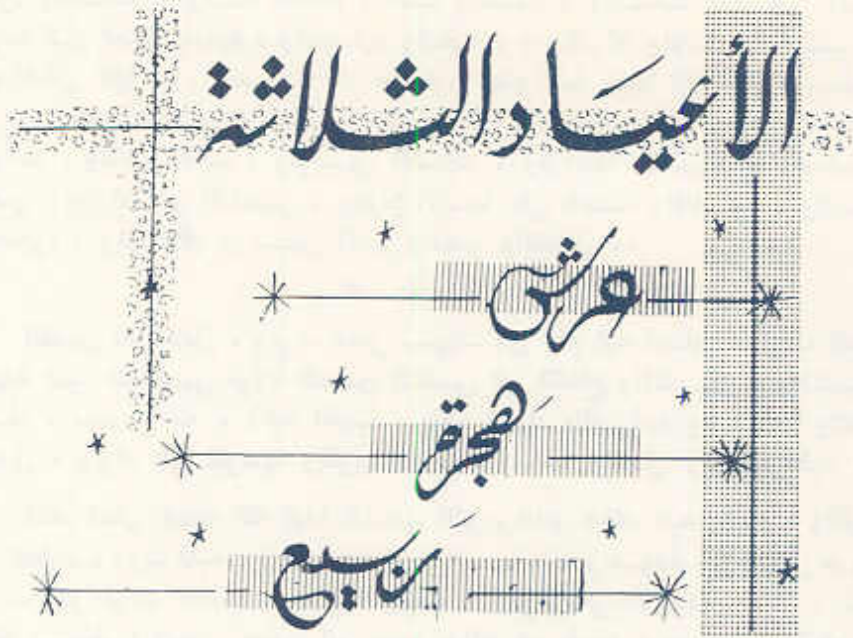 الأعياد الثلاثة
عرش
هجرة